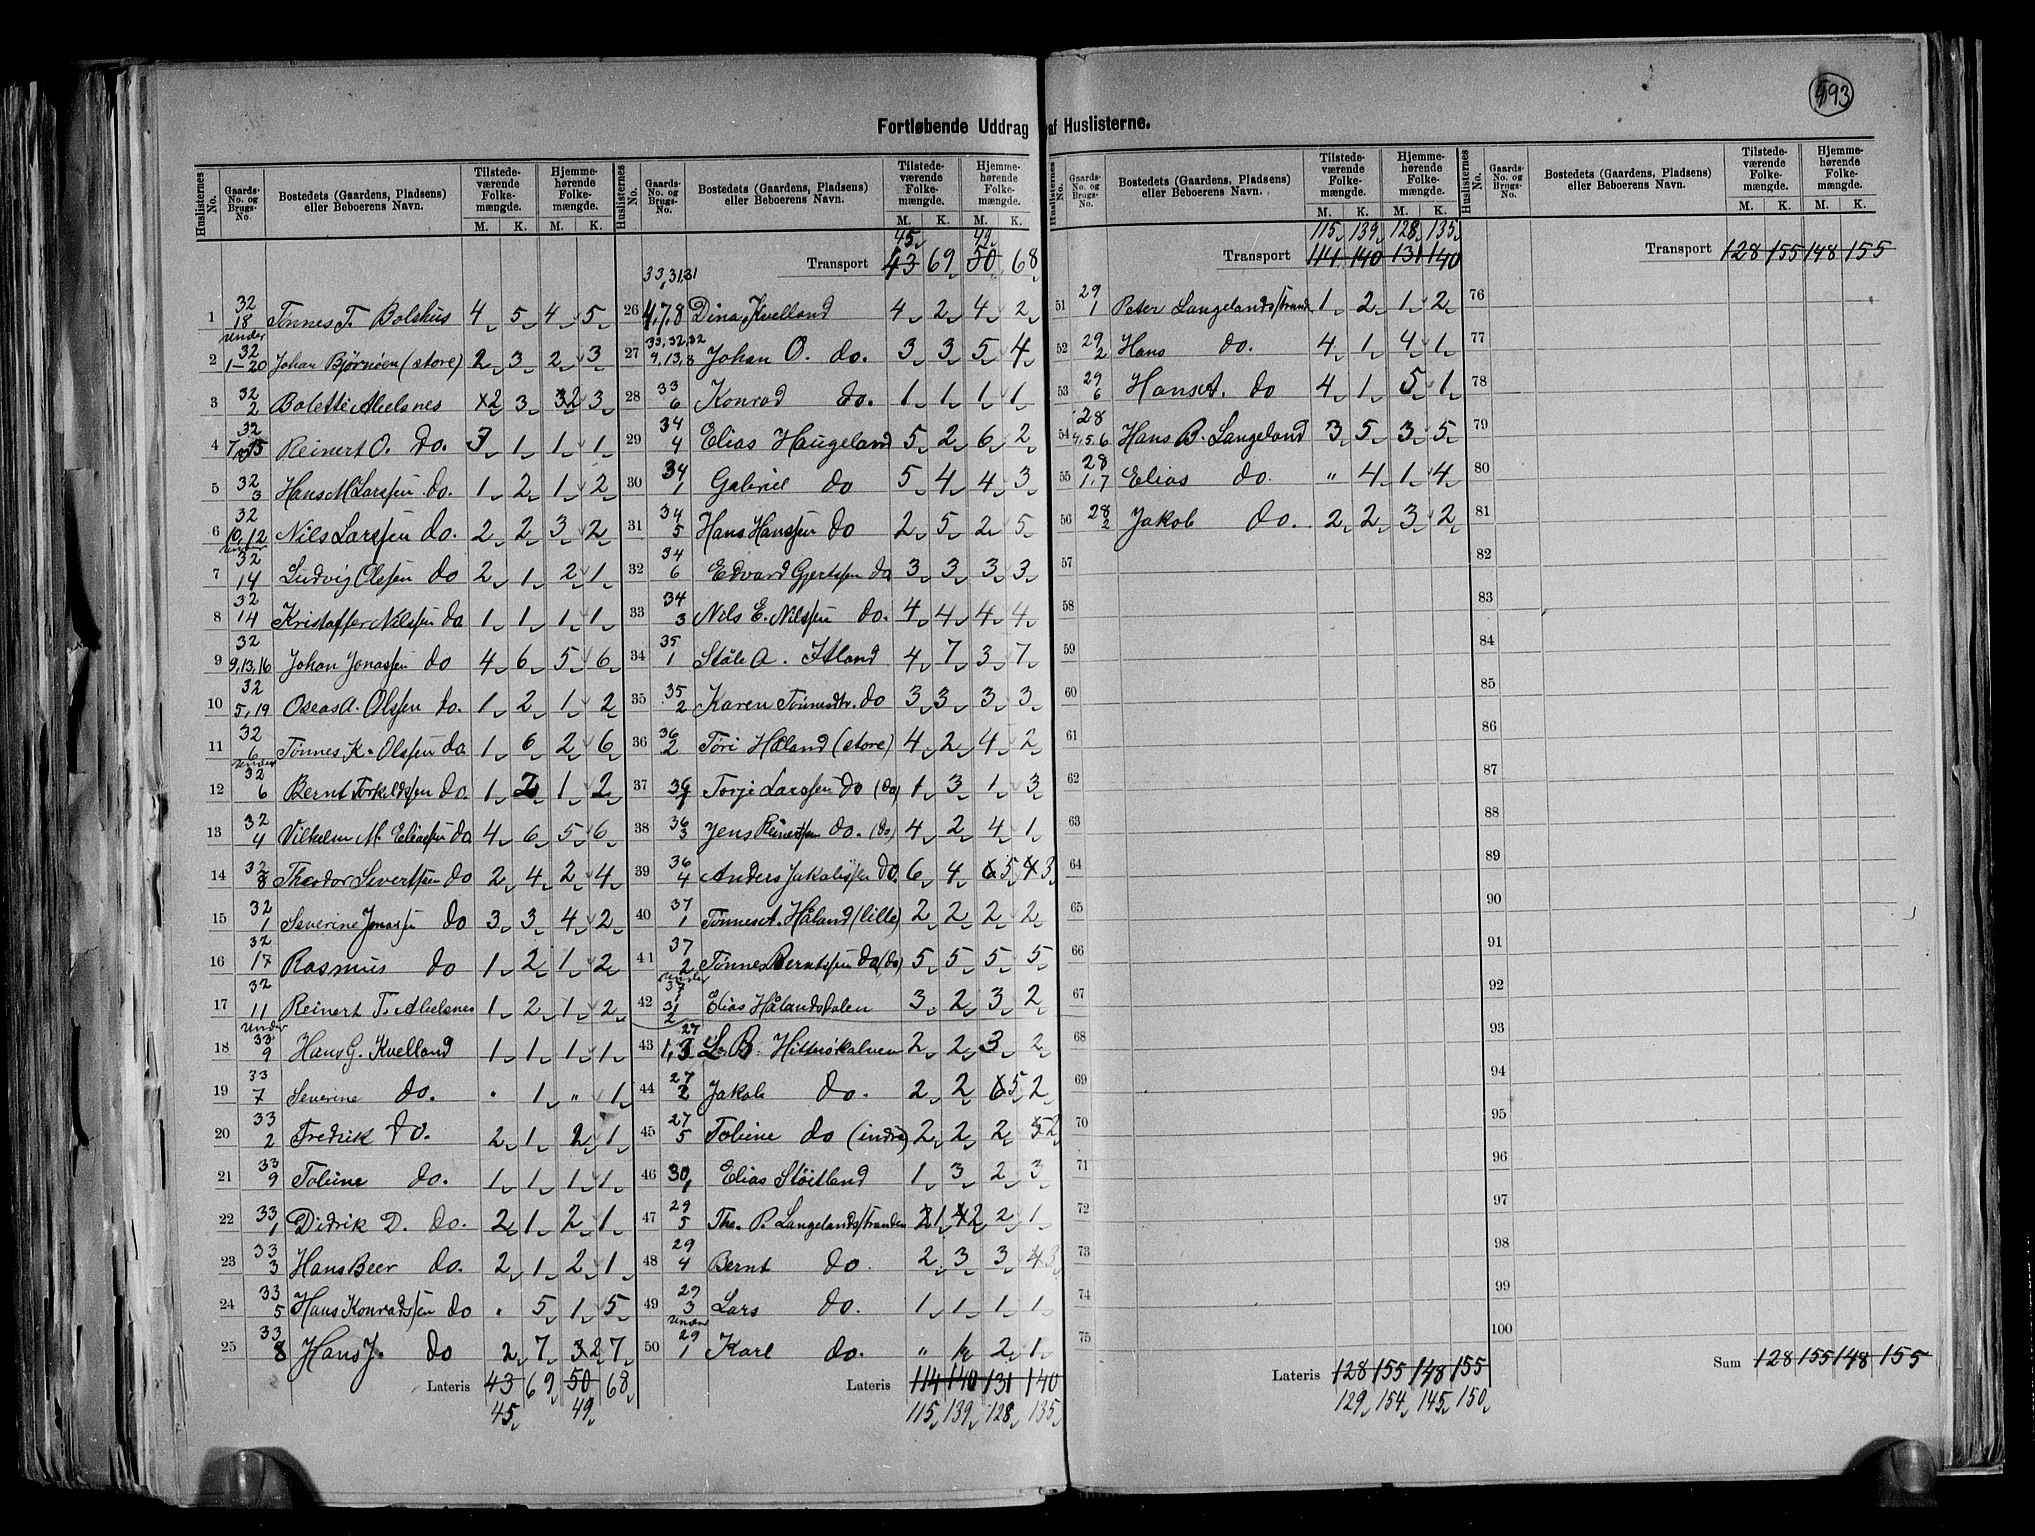 193
Fortløbende Uddrag af Huslisterne.
Huslisternes No. Gaards-No. og Brugs-No. Bostedets (Gaardens, Pladsens) eller Beboerens Navn. Tilstedeværende Folkemængde. M. K. Hjemmehørende Folkemængde. M. K.
1 32 18 Tønnes T. Bolshus 4 5 4 5
2 under 32 1-20 Johan Bjørnøen (store) 2 3 2 3
3 32 2 Bolette Abelsnes 2 3 2 3
4 32 7, 15 Reinert O. do. 3 1 1 1
5 32 3 Hans M Larssen do. 1 2 1 2
6 32 10,12 Nils Larssen do. 2 2 3 2
7 under 32 14 Ludvig Olssen do 2 1 2 1
8 32 14 Kristoffer Nilssen do 1 1 1 1
9 32 9,13,16 Johan Jonassen do 4 6 5 6
10 32 5,19 Oseas A. Olssen do. 1 2 1 2
11 32 6 Tønnes K. Olssen do 1 6 2 6
12 under 32 6 Bernt Torkildssen do. 1 2 1 2
13 32 4 Vilhelm M. Eliassen do. 4 6 5 6
14 32 8 Theodor Sivertsen do 2 4 2 4
15 32 1 Severine Jonassen do 3 3 4 2
16 32 17 Rasmus do 1 2 1 2
17 32 11 Reinert T. Abelsnes 1 2 1 2
18 under 33 9 Hans G. Kvelland 1 1 1 1
19 33 7 Severine do. " 1 " 1
20 33 2 Fredrik do. 2 1 2 1
21 33 9 Tobine do. 1 1 1 1
22 33 1 Didrik D. do. 2 1 2 1
23 33 3 Hans Beer do. 2 1 2 1
24 33 5 Hans Konradssen do " 5 1 5
25 33 8 Hans J. do 2 7 2 7
Lateris 43 69 50 68
45 49
Huslisternes No. Gaards-No. og Brugs-No. Bostedets (Gaardens, Pladsens) eller Beboerens Navn. Tilstedeværende Folkemængde. M. K. Hjemmehørende Folkemængde. M. K.
45 49
Transport 43 69 50 68
26 33,31,31 4,7,8 Dina Kvelland 4 2 4 2
27 33,32,32 9,13,8 Johan O. do. 3 3 5 4
28 33 6 Konrad do. 1 1 1 1
29 34 4 Elias Haugeland 5 2 6 2
30 34 1 Gabriel do 5 4 4 3
31 34 5 Hans Hanssen do 2 5 2 5
32 34 6 Edvard Gjertssen do 3 3 3 3
33 34 3 Nils E. Nilssen do. 4 4 4 4
34 35 1 Ståle A. Itland 4 7 3 7
35 35 2 Karen Tønnesdtr. do 3 3 3 3
36 36 2 Tøri Håland (store) 4 2 4 2
37 36 1 Torje Larssen do (do) 1 3 1 3
38 36 3 Jens Reinertsen do. (do) 4 2 4 1
39 36 4 Anders Jakobssen do. 6 4 5 3
40 37 1 Tønnes A. Håland (lille) 2 2 2 2
41 37 2 Tønnes Berntssen do (do) 5 5 5 5
42 under 37 1 31 2 Elias Hålandsdalen 3 2 3 2
43 27 1,3 L. B. Hitterøkalven 2 2 3 2
44 27 2 Jakob do. 2 2 5 2
45 27 5 Tobine do (indre) 2 2 2 2
46 30 1 Elias Støitland 1 3 2 3
47 29 5 Tho. P. Langelandsstranden 1 2 2 1
48 29 4 Bernt do. 2 3 3 3
49 29 3 Lars do. 1 1 1 1
50 under 29 1 Karl do. " 1 2 1
Lateris 114 140 131 140
115 139 128 135
Huslisternes No. Gaards-No. og Brugs-No. Bostedets (Gaardens, Pladsens) eller Beboerens Navn. Tilstedeværende Folkemængde. M. K. Hjemmehørende Folkemængde. M. K.
115 139 128 135
Transport 114 140 131 140
51 29 1 Peter Langelandsstrand 1 2 1 2
52 29 2 Hans do. 4 1 4 1
53 29 6 Hans A. do 4 1 5 1
54 28 4,5,6 Hans B. Langeland 3 5 3 5
55 28 1,7 Elias do. " 4 1 4
56 28 2 Jakob do. 2 2 3 2
57
58
59
60
61
62
63
64
65
66
67
68
69
70
71
72
73
74
75
Lateris 128 155 148 155
129 154 145 150
Huslisternes No. Gaards-No. og Brugs-No. Bostedets (Gaardens, Pladsens) eller Beboerens Navn. Tilstedeværende Folkemængde. M. K. Hjemmehørende Folkemængde. M. K.
Transport 128 155 148 155
76
77
78
79
80
81
82
83
84
85
86
87
88
89
90
91
92
93
94
95
96
97
98
99
100
Sum 128 155 148 155